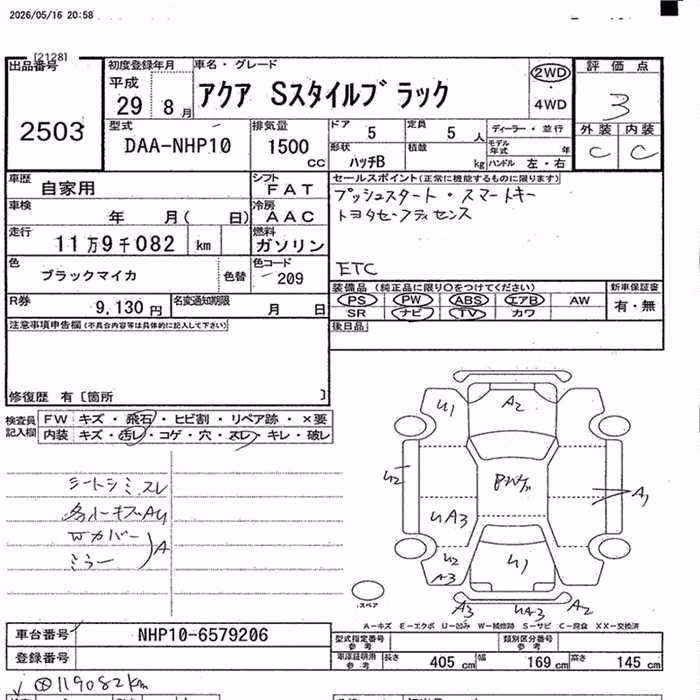 2026/05/16 20:58
[2128]
出品番号
2503
初度登録年月
平成
29 8月
車名・グレード
アクア Sスタイルブラック
2WD
・
4WD
評価点
3
外装 内装
C C
型式
DAA-NHP10
排気量
1500
CC
ドア 5
定員 5人
ディーラー・並行
形状
ハッチB
積載 kg
モデル年式 年
ハンドル 左・右
車歴
自家用
シフト
FAT
セールスポイント(正常に機能するものに限ります)
プッシュスタート・スマートキー
トヨタセーフティセンス
ETC
車検
年 月( 日)
冷房
AAC
走行
11万9千082 km
燃料
ガソリン
色
ブラックマイカ
色替
色コード
209
装備品 (純正品に限り○をつけてください)
PS PW ABS エアB AW
SR ナビ TV カワ
新車保証書
有・無
R券
9,130円
名変通知期限
月 日
後日品
注意事項申告欄(不具合内容等は具体的に記入して下さい)
修復歴 有〔箇所 〕
検査員
記入欄
FW キズ・飛石・ヒビ割・リペア跡・×要
内装 キズ・汚レ・コゲ・穴・スレ・キレ・破レ
シートシミスレ
Wカバー
ミラー
A
U1
A2
U2
A1
UA3
U2
A3
U1
A3
UA3
A2
スペア
A-キズ E-エクボ U-凹み W-補修跡 S-サビ C-腐食 XX-交換済
車台番号
NHP10-6579206
登録番号
型式指定番号
参考
類別区分番号
参考
車庫証明用
参考
長さ 405 cm
幅 169 cm
高さ 145 cm
119082km